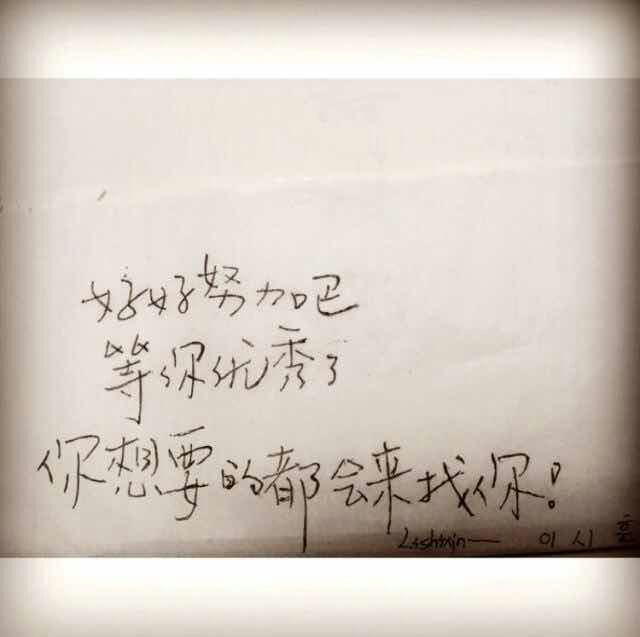 好好努力吧
等你优秀了
你想要的都会来找你!
이 시 훈